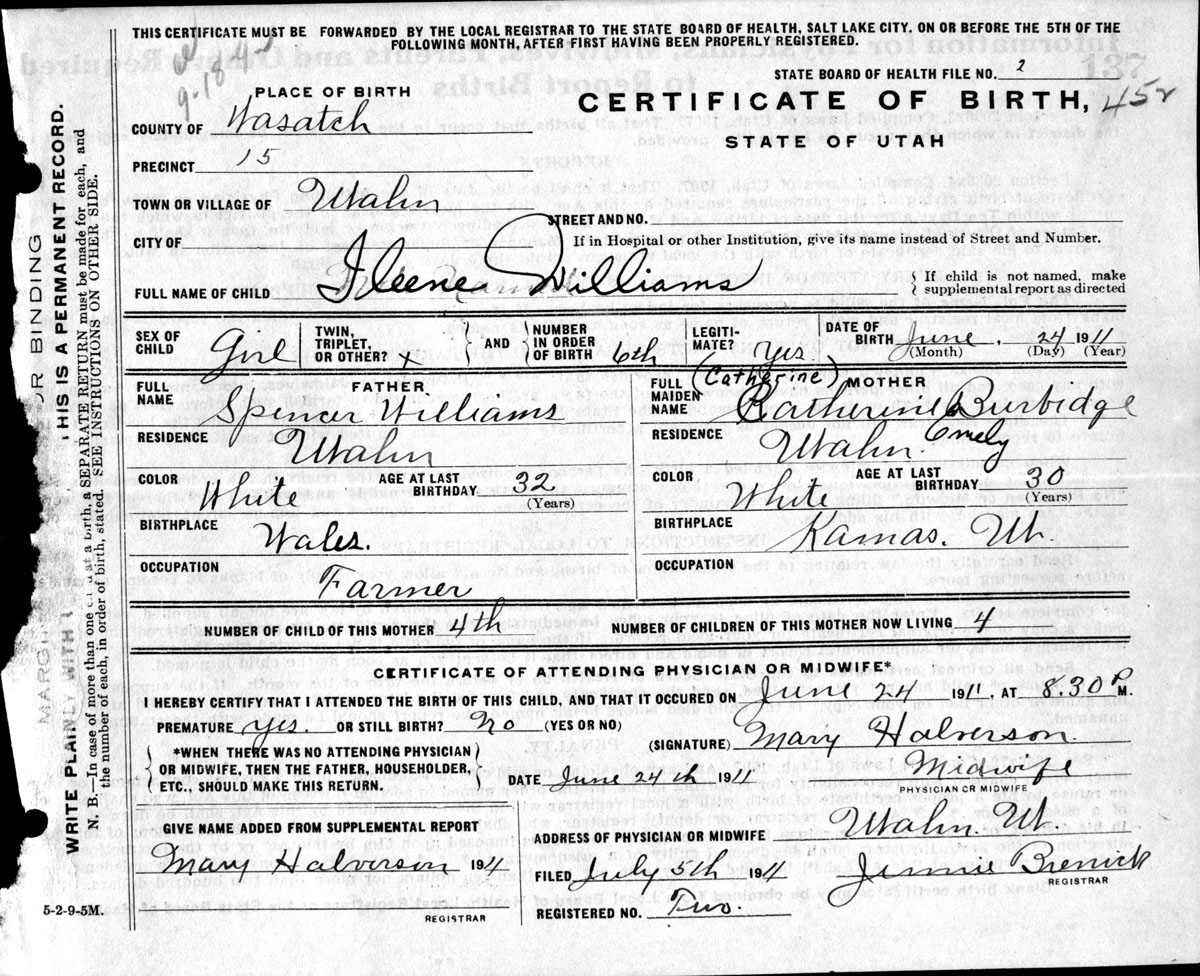 THIS CERTIFICATE MUST BE FORWARDED BY THE LOCAL REGISTRAR TO THE STATE BOARD OF HEALTH, SALT LAKE CITY. ON OR BEFORE THE 5TH OF THE
FOLLOWING MONTH, AFTER FIRST HAVING BEEN PROPERLY REGISTERED.
STATE BOARD OF HEALTH FILE NO. 2
137
PLACE OF BIRTH
CERTIFICATE OF BIRTH, 452
COUNTY OF Wasatch
STATE OF UTAH
PRECINCT 15
TOWN OR VILLAGE OF Utahn
STREET AND NO.
CITY OF
If in Hospital or other Institution, give its name instead of Street and Number.
FULL NAME OF CHILD Ileene Williams
If child is not named, make
supplemental report as directed
SEX OF CHILD Girl TWIN, TRIPLET, OR OTHER? AND NUMBER IN ORDER OF BIRTH 6th LEGITI-MATE? Yes DATE OF BIRTH June 24 1911
(Month) (Day) (Year)
FATHER
(Catherine) MOTHER
FULL NAME Spencer Williams
FULL MAIDEN NAME Katherine Burbidge
Emely
RESIDENCE Utahn
RESIDENCE Utahn
COLOR White AGE AT LAST BIRTHDAY 32 (Years)
COLOR White AGE AT LAST BIRTHDAY 30 (Years)
BIRTHPLACE Wales.
BIRTHPLACE Kamas. Ut.
OCCUPATION Farmer
OCCUPATION
NUMBER OF CHILD OF THIS MOTHER 4th NUMBER OF CHILDREN OF THIS MOTHER NOW LIVING 4
CERTIFICATE OF ATTENDING PHYSICIAN OR MIDWIFE*
I HEREBY CERTIFY THAT I ATTENDED THE BIRTH OF THIS CHILD, AND THAT IT OCCURED ON June 24 1911, AT 8.30 P M.
PREMATURE yes. OR STILL BIRTH? No (YES OR NO)
(SIGNATURE) Mary Halverson.
*WHEN THERE WAS NO ATTENDING PHYSICIAN
OR MIDWIFE, THEN THE FATHER, HOUSEHOLDER,
ETC., SHOULD MAKE THIS RETURN.
DATE June 24th 1911
Midwife
PHYSICIAN OR MIDWIFE
GIVE NAME ADDED FROM SUPPLEMENTAL REPORT
ADDRESS OF PHYSICIAN OR MIDWIFE Utahn. Ut.
Mary Halverson 1911
FILED July 5th 1911 Jennie
REGISTRAR
5-2-9-5M.
REGISTRAR
REGISTERED NO. Two.
OR BINDING
MARGI
WRITE PLAINLY WITH
THIS IS A PERMANENT RECORD.
N. B.—In case of more than one at a birth, a SEPARATE RETURN must be made for each, and
the number of each, in order of birth, stated. SEE INSTRUCTIONS ON OTHER SIDE.